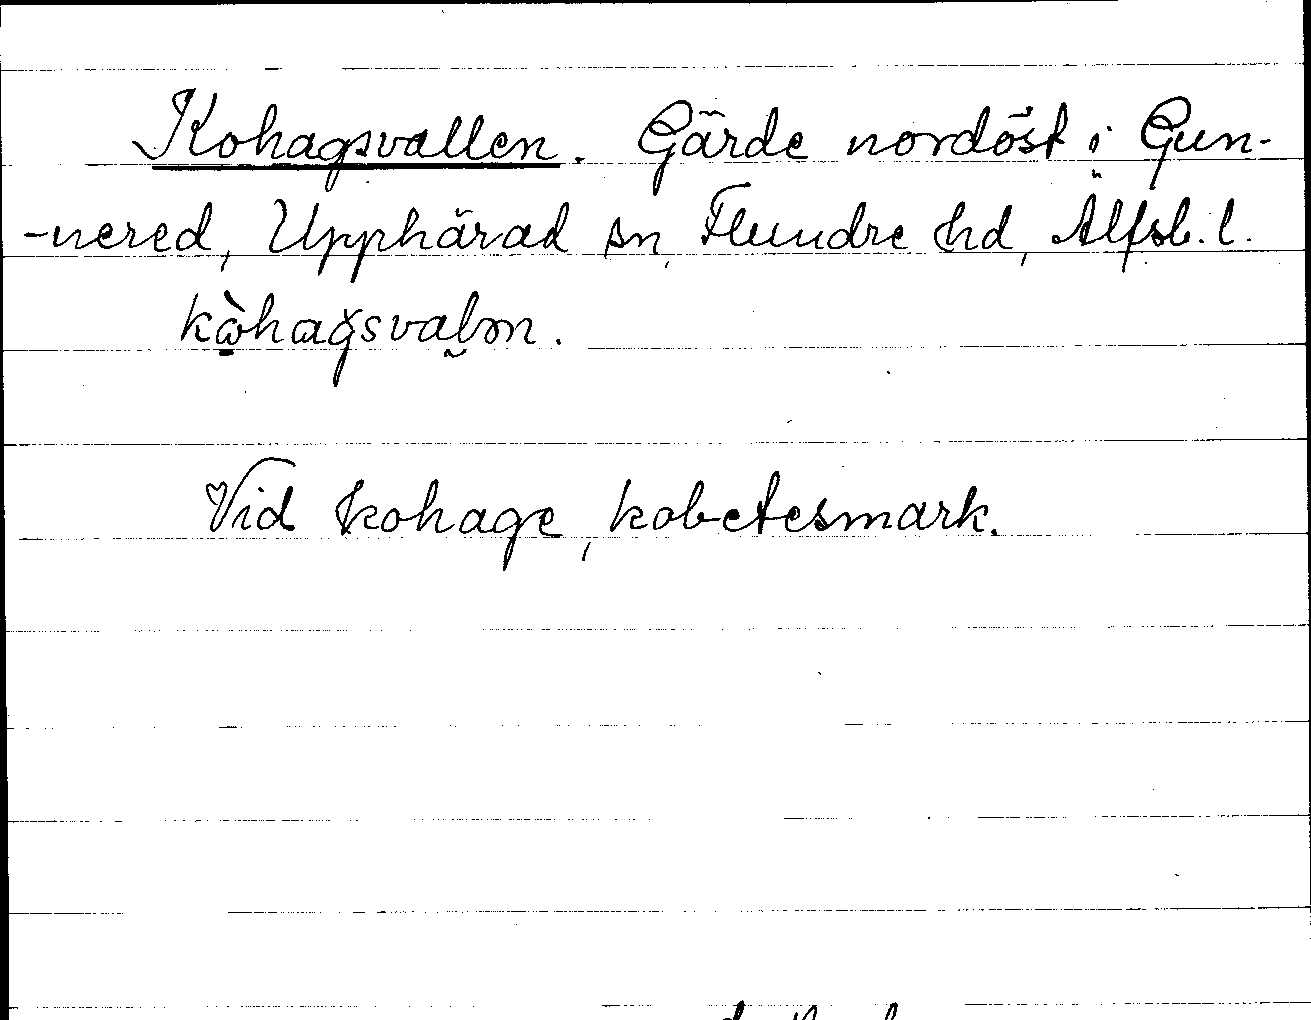 Kohagsvallen. Gärde nordöst i Gun-
-nered, Upphärad sn, Flundre hd, Älfsb. l.
kὼhagsvaln.
Vid kohage, kobetesmark.